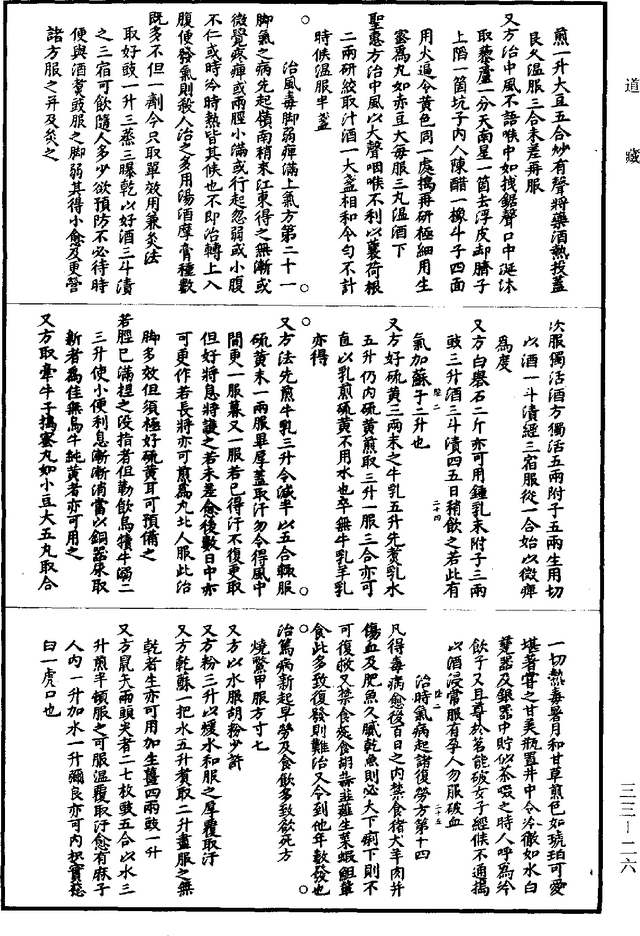 道藏
煎一升大豆五合炒有聲將藥酒熱投蓋
良久溫服三合未差再服
又方治中風不語喉中如拽鋸聲口中涎沫
取藜蘆一分天南星一箇去浮皮却臍子
上陷一箇坑子内入陳醋一橡斗子四面
用火逼令黃色同一處搗再研極細用生
蜜爲丸如赤豆大每服三丸溫酒下
聖惠方治中風以大聲咽喉不利以蘘荷根
二兩研絞取汁酒一大盞相和令勻不計
時候溫服半盞
治風毒脚弱痺滿上氣方第二十一
脚氣之病先起嶺南稍來江東得之無漸或
微覺疼痺或兩脛小滿或行起忽弱或小腹
不仁或時冷時熱皆其候也不即治轉上入
腹便發氣則殺人治之多用湯酒摩膏種數
既多不但一劑今只取單效用兼灸法
取好豉一升三蒸三曝乾以好酒三斗漬
之三宿可飲隨人多少欲預防不必待時
便與酒煑豉服之脚弱其得小愈及更營
諸方服之并及灸之
次服獨活酒方獨活五兩附子五兩生用切
以酒一斗漬經三宿服從一合始以微痺
爲度
又方白礬石二斤亦可用鍾乳末附子三兩
豉三升酒三斗漬四五日稍飲之若此有
氣加蘇子二升也
又方好硫黃三兩末之牛乳五升先煑乳水
五升仍内硫黃煎取三升一服三合亦可
直以乳煎硫黃不用水也卒無牛乳羊乳
亦得
又方法先煎牛乳三升令減半以五合輙服
硫黃末一兩服畢厚蓋取汗勿令得風中
間更一服暮又一服若已得汗不復更取
但好將息將護之若未差愈後數日中亦
可更作若長將亦可煎爲丸北人服此治
脚多效但須極好硫黃耳可預備之
若脛已滿捏之没指者但勤飲烏犢牛溺二
三升使小便利息漸漸消當以銅器尿取
新者爲佳無烏牛純黃者亦可用之
又方取牽牛子搗蜜丸如小豆大五丸取令
一切熱毒暑月和甘草煎色如琥珀可愛
堪著嘗之甘美瓶置井中令冷徹如水白
甆器及銀器中貯似茶啜之時人呼爲冷
飲子又且尊於茗能破女子經候不通搗
以酒浸常服有孕人勿服破血
治時氣病起諸復勞方第十四
凡得毒病愈後百日之内禁食猪犬羊肉并
傷血及肥魚久膩乾魚則必大下痢下則不
可復救又禁食麪食胡蒜韭薤生菜蝦鱓輩
食此多致復發則難治又令到他年數發也
治篤病新起早勞及食飲多致欲死方
燒鱉甲服方寸匕
又方以水服胡粉少許
又方粉三升以緩水和服之厚覆取汗
又方乾蘇一把水五升煑取二升盡服之無
乾者生亦可用加生薑四兩豉一升
又方鼠矢兩頭尖者二七枚豉五合以水三
升煎半頓服之可服溫覆取汗愈有麻子
人内一升加水一升彌良亦可内枳實葱
白一虎口也
三三—二六